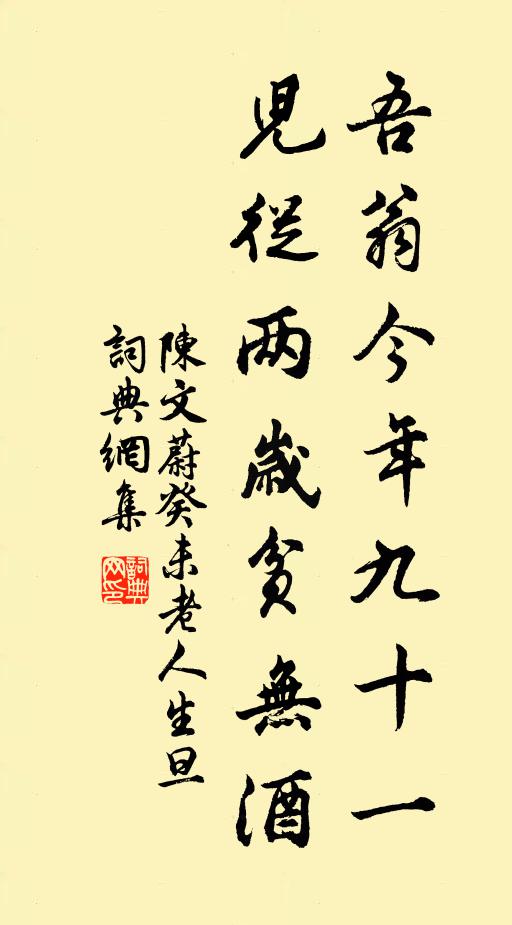 吾翁今年九十一
児從兩歲貧無酒
陳文蔚癸未老人生旦
詞典網集
詞典網印